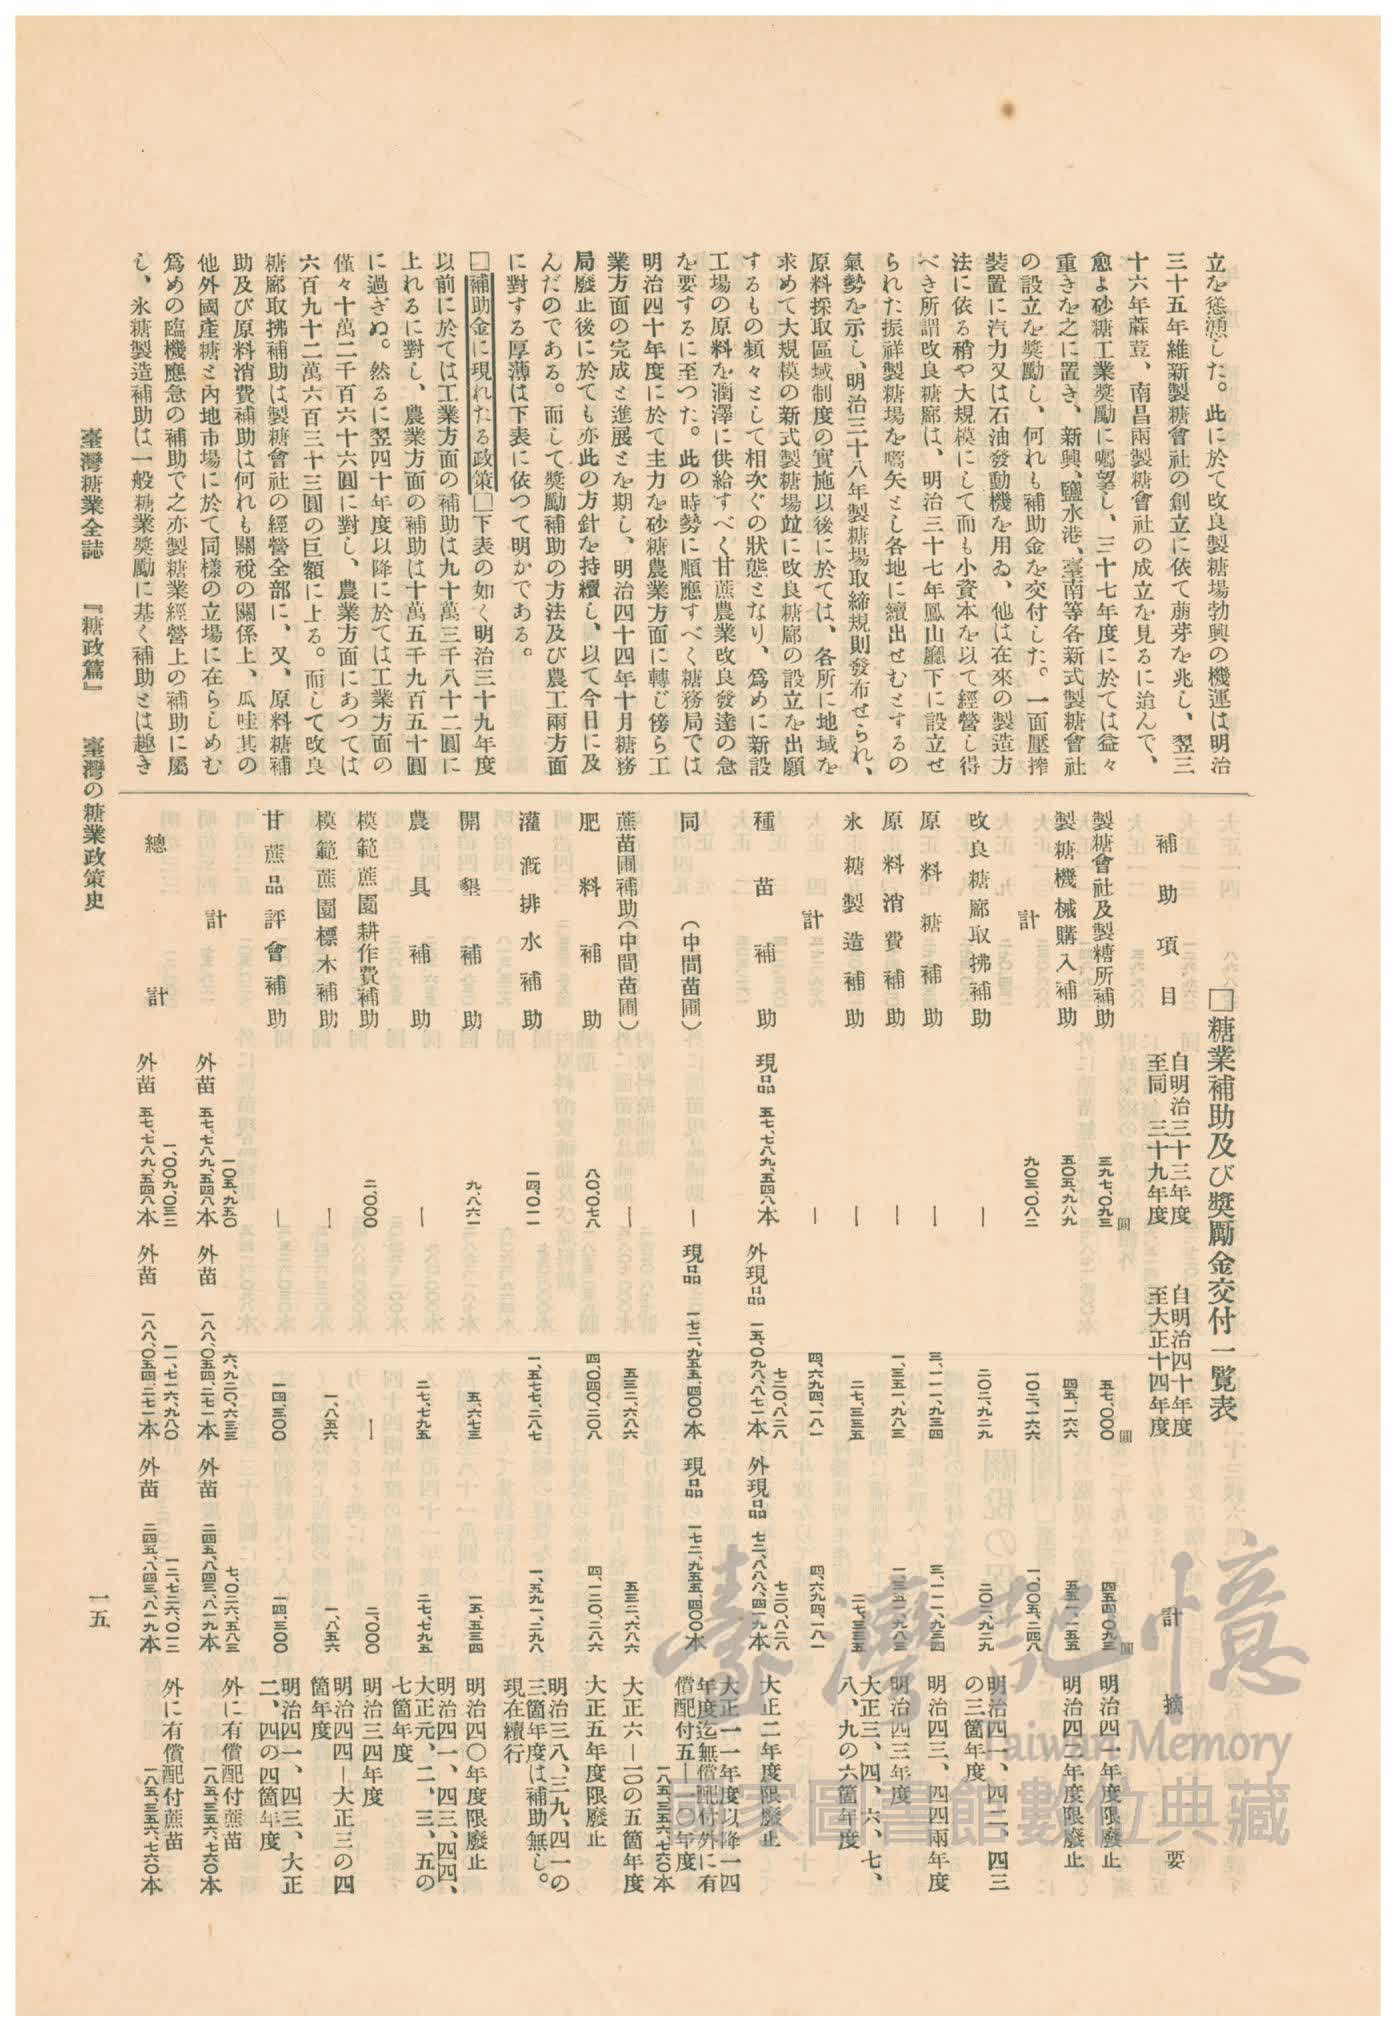 立を慫慂した。此に於て改良製糖場勃興の機運は明治
三十五年維新製糖會社の創立に依て萠芽を兆し、翌三
十六年蔴荳、南昌兩製糖會社の成立を見るに迨んで、
愈よ砂糖工業奬勵に囑望し、三十七年度に於ては益々
重きを之に置き、新興、鹽水港、臺南等各新式製糖會社
の設立を奬勵し、何れも補助金を交付した。一面壓搾
裝置に汽力又は石油發動機を用ゐ、他は在來の製造方
法に依る稍や大規模にして而も小資本を以て經營し得
べき所謂改良糖廍は、明治三十七年鳳山廳下に設立せ
られた振祥製糖場を嚆矢とし各地に續出せむとするの
氣勢を示し、明治三十八年製糖場取締規則發布せられ、
原料採取區域制度の實施以後に於ては、各所に地域を
求めて大規模の新式製糖場竝に改良糖廍の設立を出願
するもの類々として相次ぐの狀態となり、爲めに新設
工場の原料を潤澤に供給すべく甘蔗農業改良發達の急
を要するに至つた。此の時勢に順應すべく糖務局では
明治四十年度に於て主力を砂糖農業方面に轉じ傍ら工
業方面の完成と進展とを期し、明治四十四年十月糖務
局廢止後に於ても亦此の方針を持續し、以て今日に及
んだのである。而して奬勵補助の方法及び農工兩方面
に對する厚薄は下表に依つて明かである。
□補助金に現れたる政策□下表の如く明治三十九年度
以前に於ては工業方面の補助は九十萬三千八十二圓に
上れるに對し、農業方面の補助は十萬五千九百五十圓
に過ぎぬ。然るに翌四十年度以降に於ては工業方面の
僅々十萬二千百六十六圓に對し、農業方面にあつては
六百九十二萬六百三十三圓の巨額に上る。而して改良
糖廍取拂補助は製糖會社の經營全部に、又、原料糖補
助及び原料消費補助は何れも關稅の關係上、瓜哇其の
他外國產糖と內地市場に於て同樣の立場に在らしめむ
爲めの臨機應急の補助で之亦製糖業經營上の補助に屬
し、氷糖製造補助は一般糖業奬勵に基く補助とは趣き
□糖業補助及び奬勵金交付一覽表
補助項目 自明治三十三年度至同三十九年度 自明治四十年度至大正十四年度 計 摘要
製糖會社及製糖所補助 三九七、〇九三圓 五七、〇〇〇圓 四五四、〇九三圓 明治四一年度限廢止
製糖機械購入補助 五〇五、九八九 四五、一六六 五五一、一五五 明治四三年度限廢止
計 九〇三、〇八二 一〇二、一六六 一、〇〇五、二四八
改良糖廍取拂補助 — 二〇二、九二九 二〇二、九二九 明治四一、四二、四三の三箇年度
原料糖補助 — 三、一一一、九三四 三、一一一、九三四 明治四三、四四兩年度
原料消費補助 — 一、三五一、九八三 一、三五一、九八三 明治四三年度
氷糖製造補助 — 二七、三三五 二七、三三五 大正三、四、六、七、八、九の六箇年度
計 — 四、六九四、一八一 四、六九四、一八一
種苗補助 現品 五七、七八九、五四八本 七二〇、八二八 外現品 一五、〇九八、八七一本 七二〇、八二八 外現品 七二、八八八、四一九本 大正二年度限廢止
同(中間苗圃) — 現品 一七二、九五五、四〇〇本 現品 一七二、九五五、四〇〇本 大正一一年度以降一四年度迄無償配付外に有償配付五—一〇年度 一八五、三五六、七六〇本
蔗苗圃補助(中間苗圃) — 五三二、六八六 五三二、六八六 大正六—一〇の五箇年度
肥料補助 八〇、〇七八 四、〇四〇、二〇八 四、一二〇、二八六 大正五年度限廢止
灌漑排水補助 一四、〇一一 一、五七七、二八七 一、五九一、二九八 明治三八、三九、四一の三箇年度は補助無し。現在續行
開墾補助 九、八六一 五、六七三 一五、五三四 明治四〇年度限廢止
農具補助 — 二七、七九五 二七、七九五 明治四一、四三、四四、大正元、二、三、五の七箇年度
模範蔗園耕作費補助 二、〇〇〇 — 二、〇〇〇 明治三四年度
模範蔗園標木補助 — 一、八五六 一、八五六 明治四四—大正三の四箇年度
甘蔗品評會補助 — 一四、三〇〇 一四、三〇〇 明治四一、四三、大正二、四の四箇年度
計 一〇五、九五〇 外苗 五七、七八九、五四八本 六、九二〇、六三三 外苗 一八八、〇五四、二七一本 七、〇二六、五八三 外苗 二四五、八四三、八一九本 外に有償配付蔗苗 一八五、三五六、七六〇本
總計 一、〇〇九、〇三二 外苗 五七、七八九、五四八本 一一、七一六、九八〇 外苗 一八八、〇五四、二七一本 一二、七二六、〇一二 外苗 二四五、八四三、八一九本 外に有償配付蔗苗 一八五、三五六、七六〇本
臺灣糖業全誌 『糖政篇』 臺灣の糖業政策史
一五
臺灣記憶
Taiwan Memory
國家圖書館數位典藏